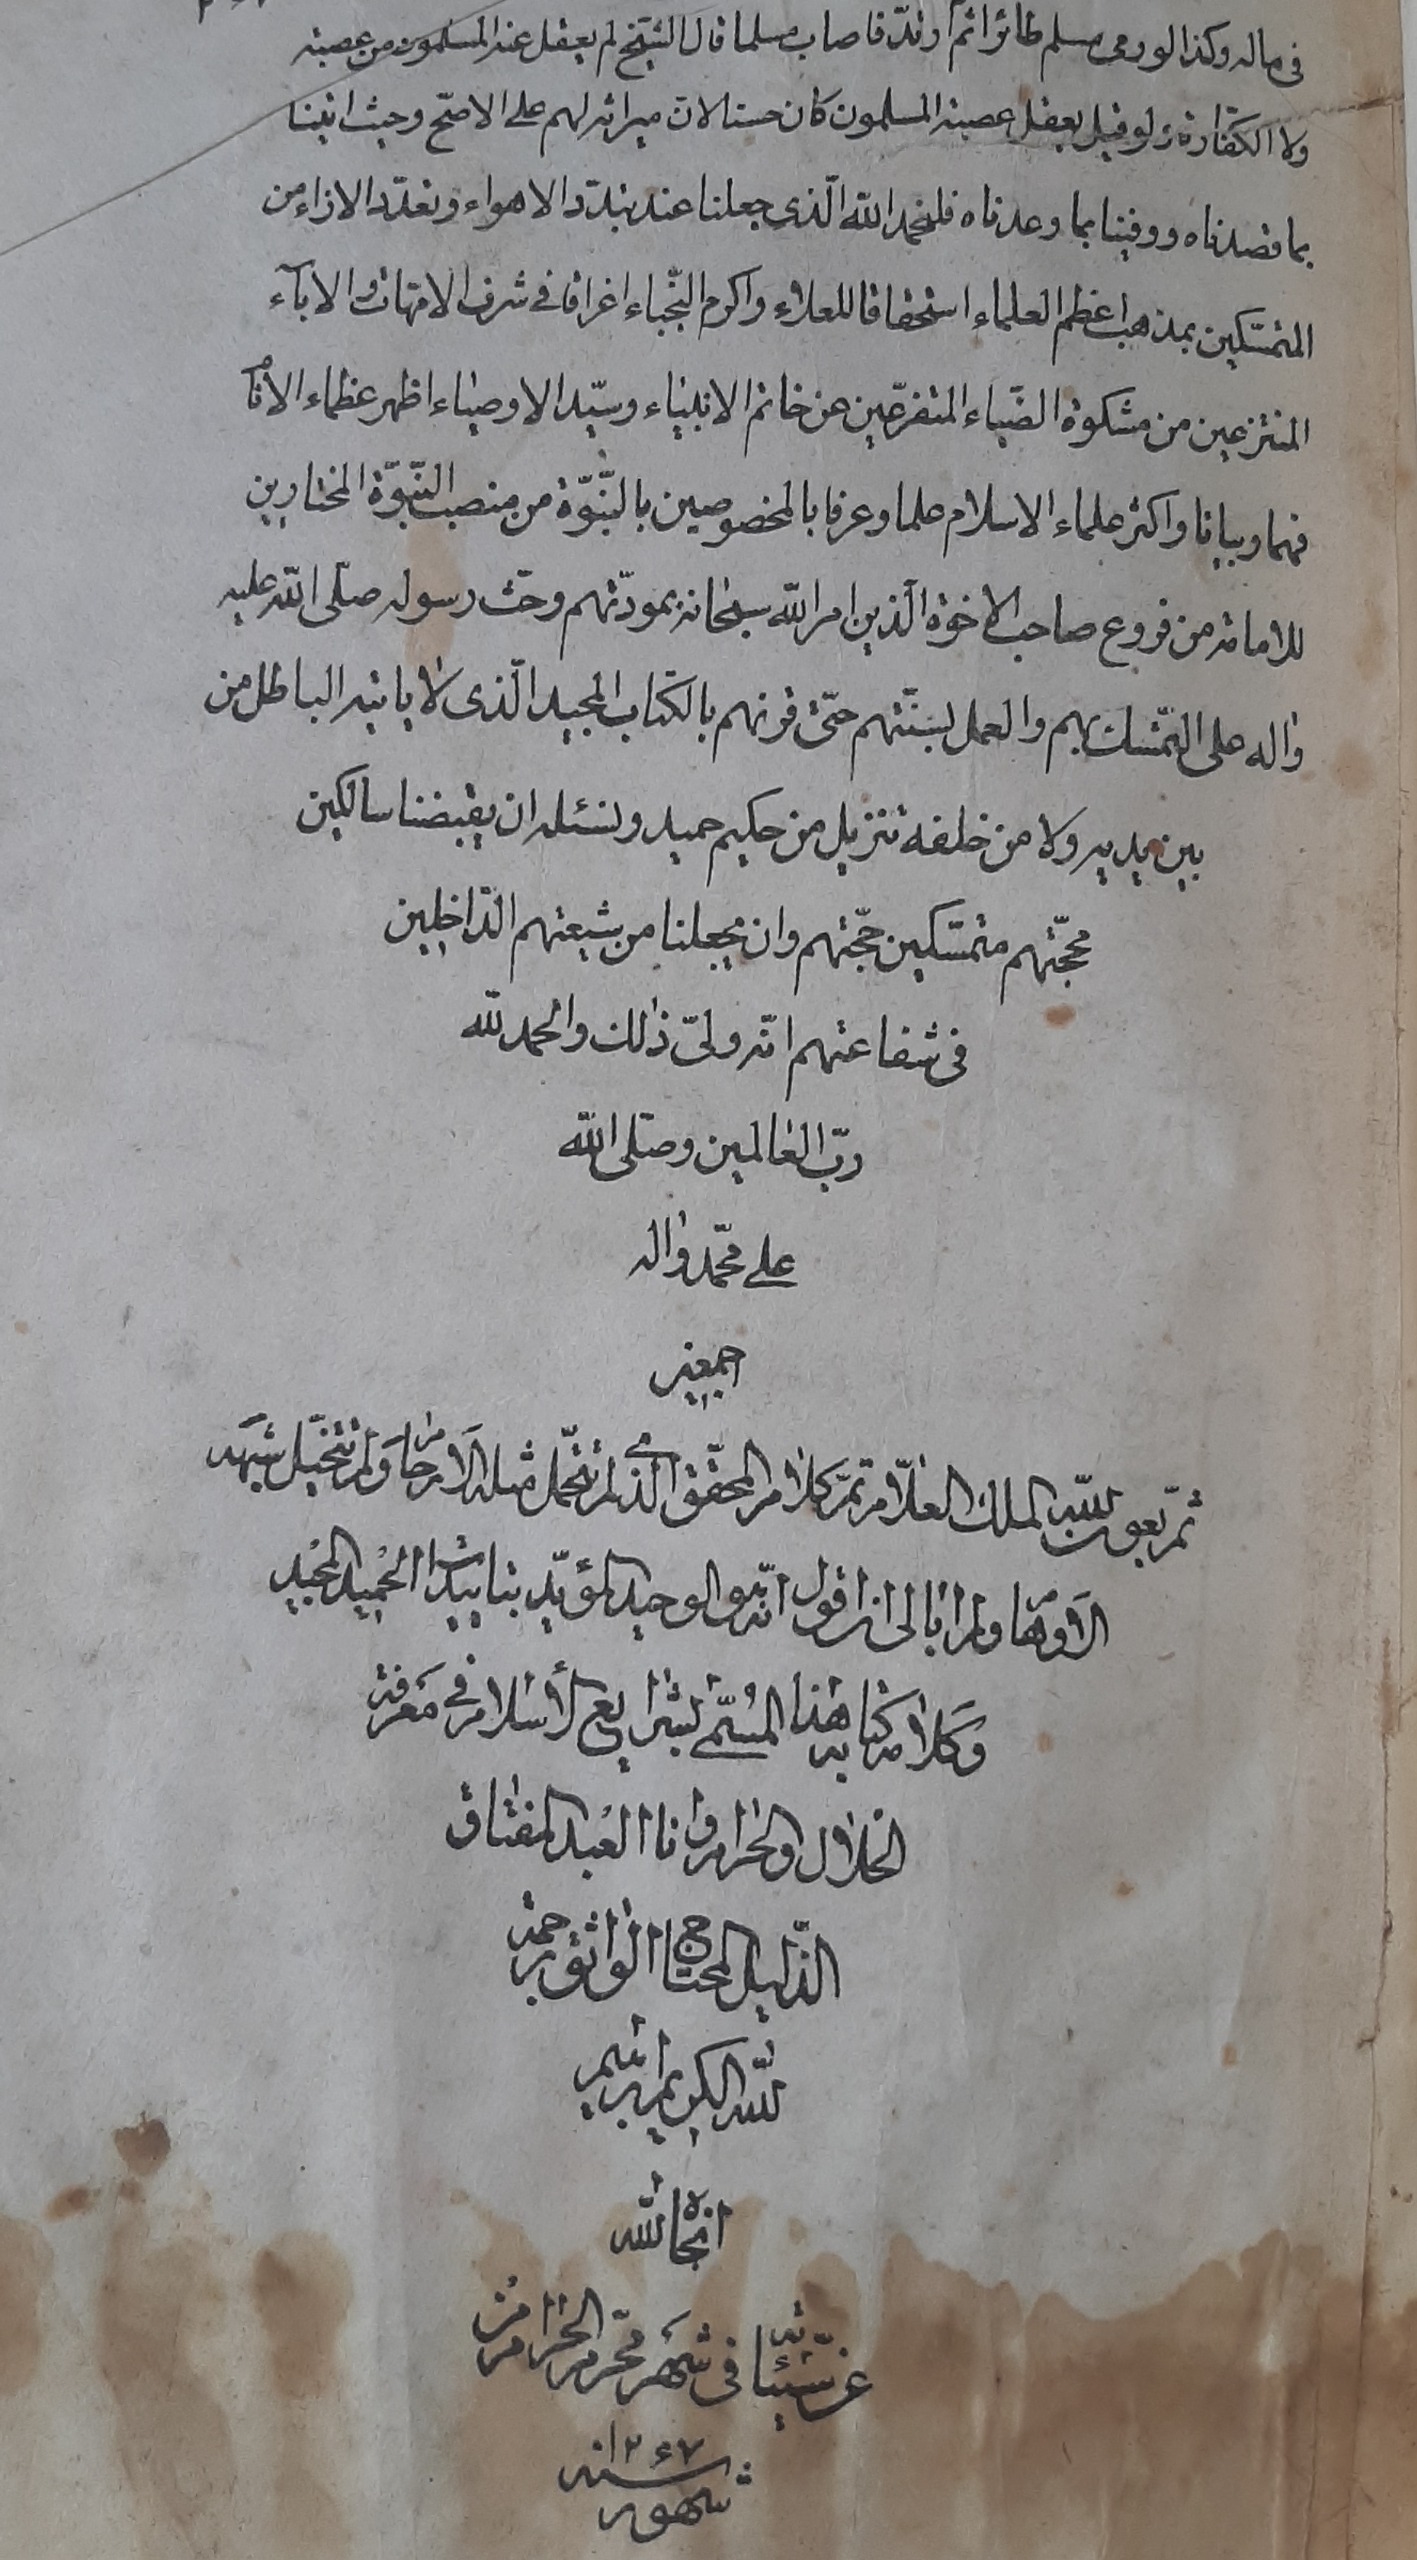 فى ماله وكذا لو رمى مسلم طائرا ثم ارتد فاصاب مسلما قال الشيخ لم يعقل عنه المسلمون من عصبته
ولا الكفار ولو قيل يعقل عصبته المسلمون كان حسنا لان ميراثه لهم على الاصح وحيث اتينا
بما قصدناه ووفينا بما وعدناه فلنحمد الله الّذى جعلنا عند تبدّد الاهواء وتعدّد الاراء من
المتمسّكين بمذهب اعظم العلماء استحقاقا للعلاء واكرم النّجباء اعراقا فى شرف الامّهات والاباء
المنتزعين من مشكوة الضّياء المتفرّعين عن خاتم الانبياء وسيّد الاوصياء اظهر عظماء الانام
فهما وبيانا واكثر علماء الاسلام علما وعرفانا المخصوصين بالنّبوّة من منصب النّبوّة المختارين
للامامة من فروع صاحب الاخوة الّذين امر الله سبحانه بمودّتهم وحثّ رسوله صلّى الله عليه
واله على التّمسّك بهم والعمل بسنّتهم حتّى قرنهم بالكتاب المجيد الّذى لا ياتيه الباطل من
بين يديه ولا من خلفه تنزيل من حكيم حميد ونسئله ان يقبضنا سالكين
محجّتهم متمسّكين حجّتهم وان يجعلنا من شيعتهم الدّاخلين
فى شفاعتهم انّه ولىّ ذلك والحمد لله
ربّ العالمين وصلّى الله
على محمّد واله
اجمعين
ثمّ بعون الله الملك العلّام تمّ كلام المحقّق الّذى لم تتحمّل مثله الارحام ولم تتخيّل شبهه
الاوهام ولم ابالى ان اقول انّه هو الوحيد المؤيّد بتاييد الله الحميد المجيد
وكلام كتابه هذا المسمّى بشرايع الاسلام فى معرفة
الحلال والحرام وانا العبد المفتاق
الذّليل المحتاج الواثق برحمة
الله الكريم ابراهيم
فى شهر محرّم الحرام من
شهور سنه ١٢٤٧